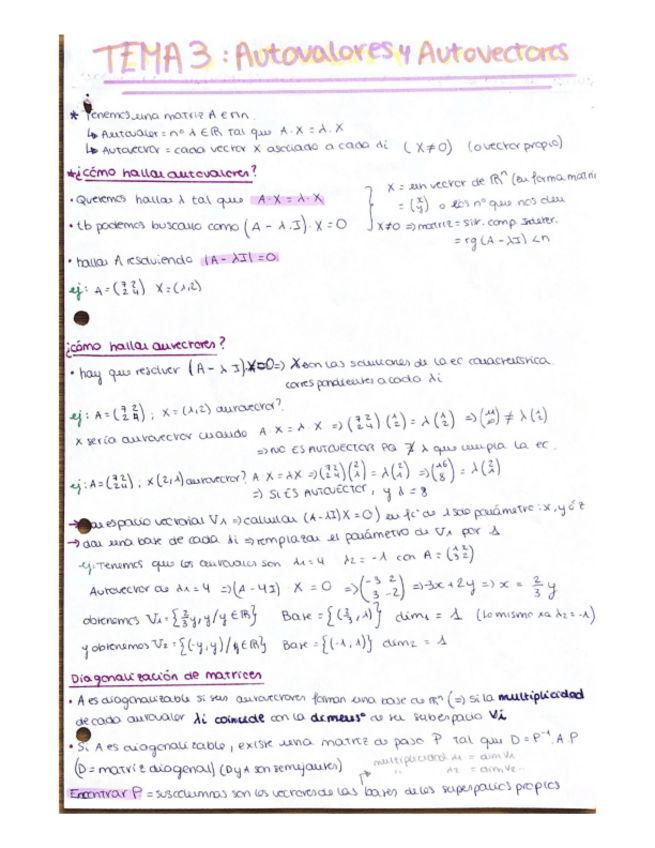 TEMA 3: Autovalores y Autovectores
* Tenemos una matriz A ∈ nn.
↳ Autovalor = nº λ ∈ ℝ tal que A·X = λ·X
↳ Autovector = cada vector X asociado a cada λi (X≠0) (o vector propio)
*¿Cómo hallar autovalores?
· Queremos hallar λ tal que A·X = λ·X
· tb podemos buscarlo como (A - λ.I)·X = 0
· hallar λ resolviendo |A - λI| = 0
X = un vector de ℝⁿ (en forma matri
= (x y) o los nº que nos den
X≠0 => matriz = sist. comp. Indeter.
= rg (A - λI) < n
ej: A = (7 2 2 4) X = (1,2)
¿cómo hallar auvectores?
· hay que resolver (A - λI)·X=0 => X son las soluciones de la ec característica
correspondientes a cada λi
ej: A = (7 2 2 4) ; X = (1,2) autovector?
X sería autovector cuando A·X = λ·X => (7 2 2 4) (1 2) = λ (1 2) => (11 10) ≠ λ (1 2)
=> NO ES AUTOVECTOR PQ ∄ λ que cumpla la ec.
ej: A = (7 2 2 4) ; X (2,1) autovector? A·X = λX => (7 2 2 4) (2 1) = λ (2 1) => (16 8) = λ (2 1)
=> SI ES AUTOVECTOR, y λ = 8
→ espacio vectorial V1 => calcular (A-λI)X = 0) en fc de 1 solo parámetro: x, y ó z
→ dar una base de cada λi => remplazar el parámetro de V1 por 1
ej. Tenemos que los autovalores son λ1 = 4 λ2 = -1 con A = (1 2 3 2)
Autovector de λ1 = 4 => (A - 4I) · X = 0 => (-3 2 3 -2) => -3x + 2y => x = 2/3 y
obtenemos V1 = {2/3 y, y / y ∈ ℝ} Base = {(2/3, 1)} dim1 = 1 (Lo mismo xa λ2 = -1)
y obtenemos V2 = {(-y, y) / y ∈ ℝ} Base = {(-1, 1)} dim2 = 1
Diagonalización de matrices
· A es diagonalizable si sus autovectores forman una base de ℝⁿ (=) si la multiplicidad
de cada autovalor λi coincide con la dimensº de su subespacio Vi
· Si A es diagonalizable, existe una matriz de paso P tal que D = P⁻¹.A.P
(D = matriz diagonal) (D y A son semejantes)
multiplicidad λ1 = dim V1
" λ2 = dim V2
Encontrar P = sus columnas son los vectores de las bases de los superpacios propios